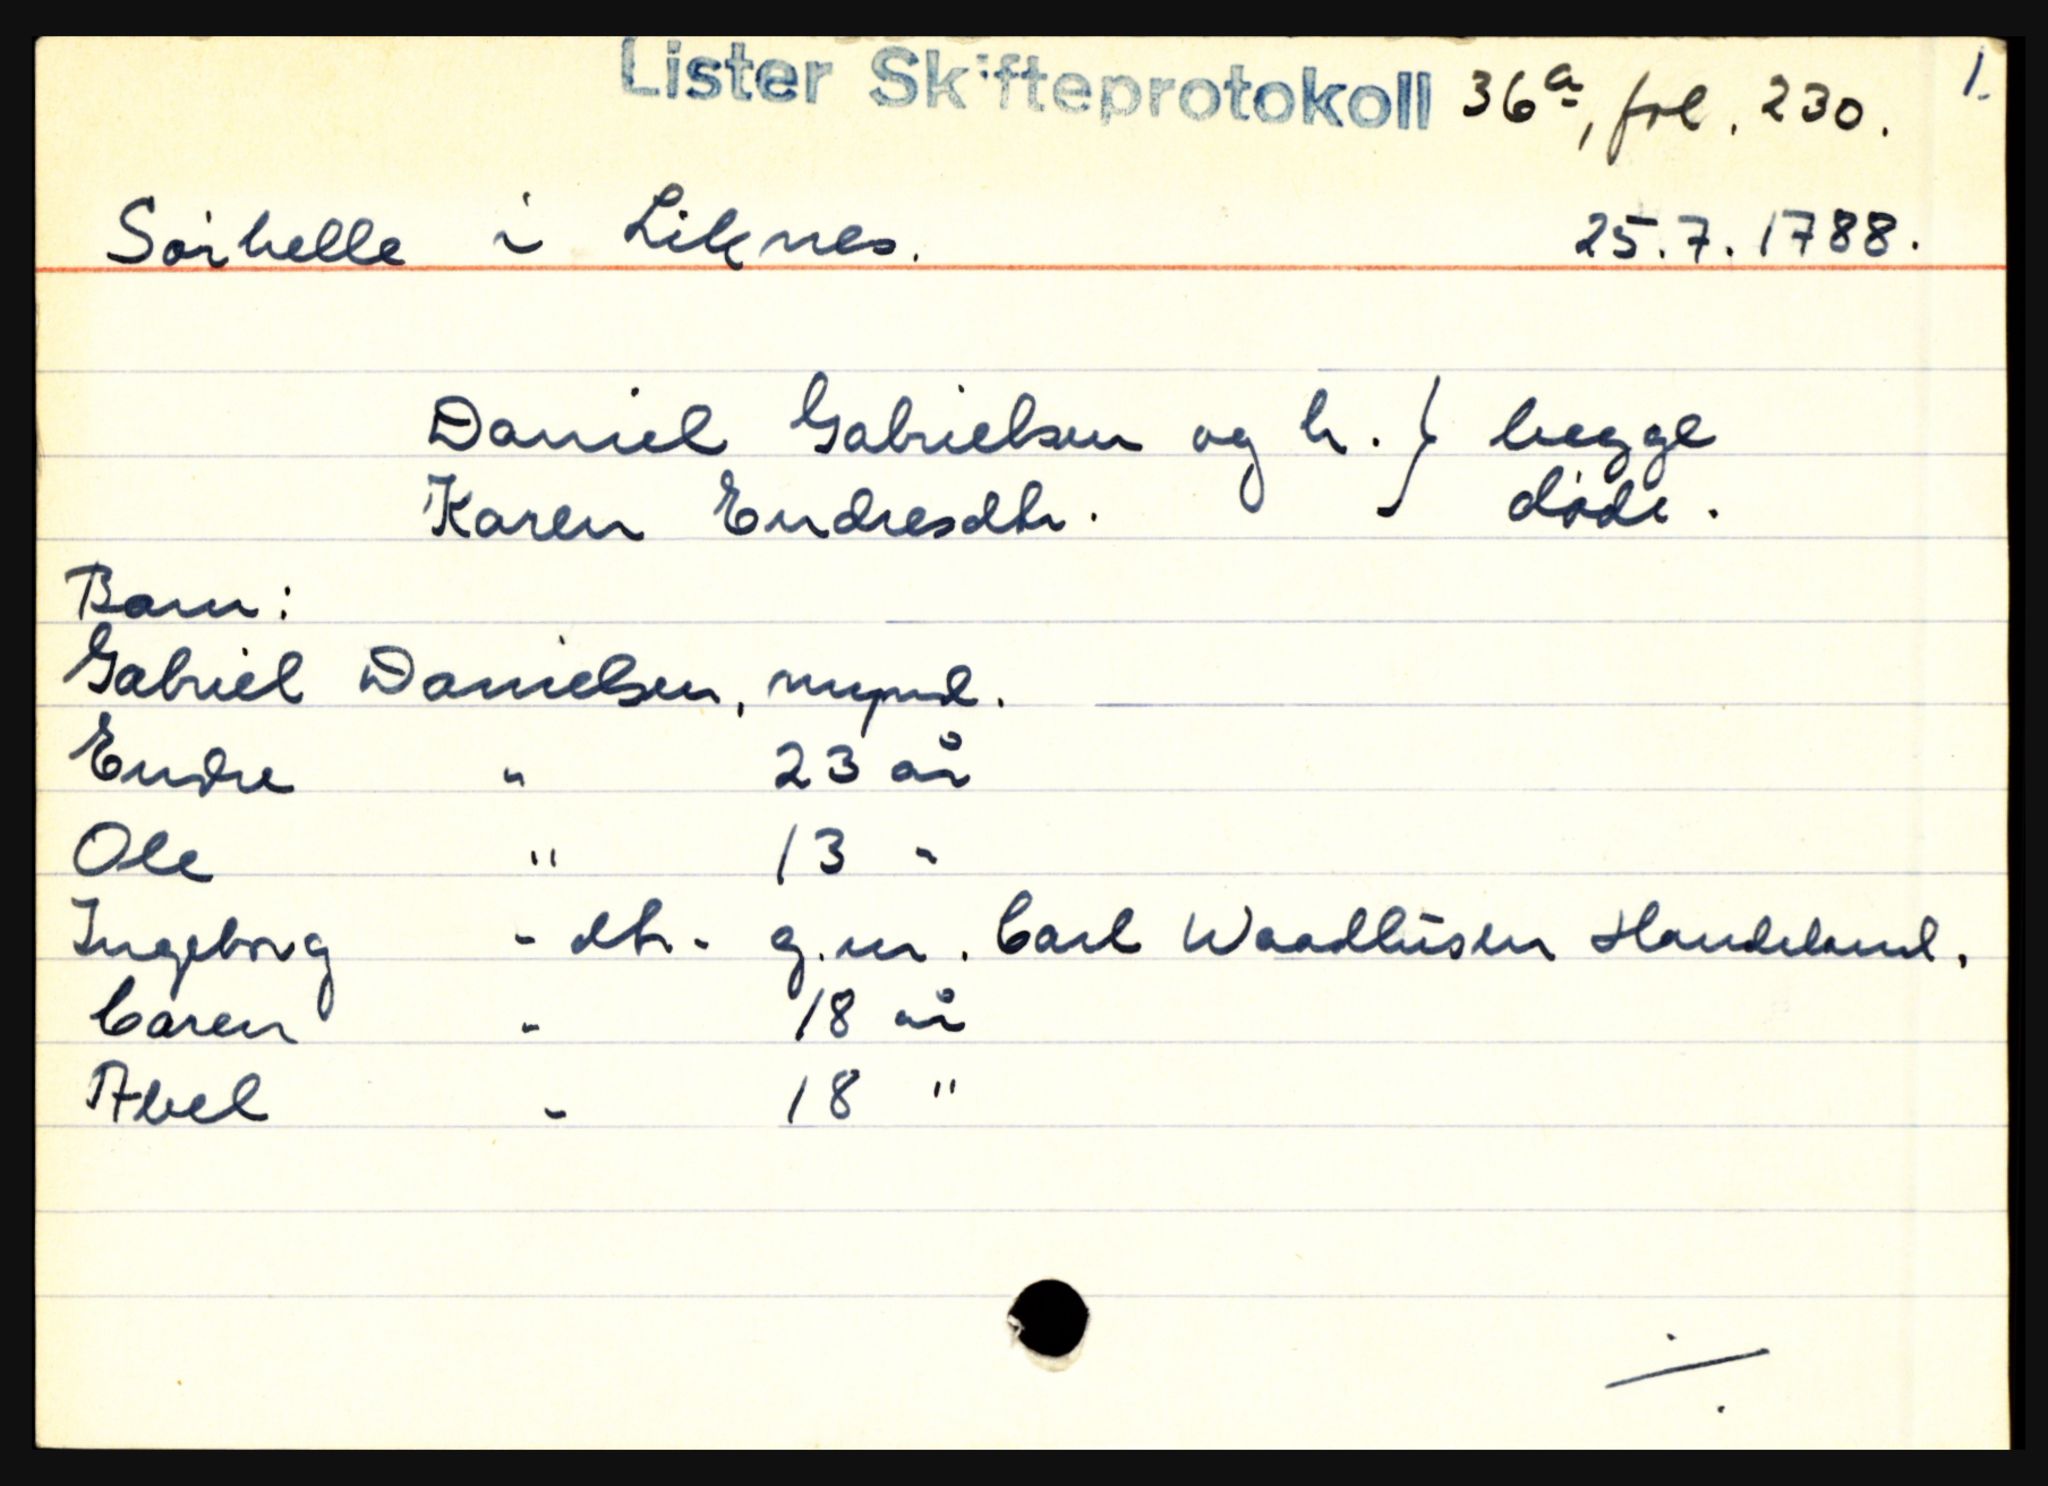 Lister Skifteprotokoll 36a, fol. 230. 1.
Sørhelle i Liknes. 25.7.1788.
Daniel Gabrielsen og h. } begge
Karen Endresdtr. døde.
Barn:
Gabriel Danielsen, mynd.
Endre " 23 år
Ole " 13 "
Ingeborg " dtr. g.m. Carl Waadhusen Handeland.
Caren " 18 år
Abel " 18 "